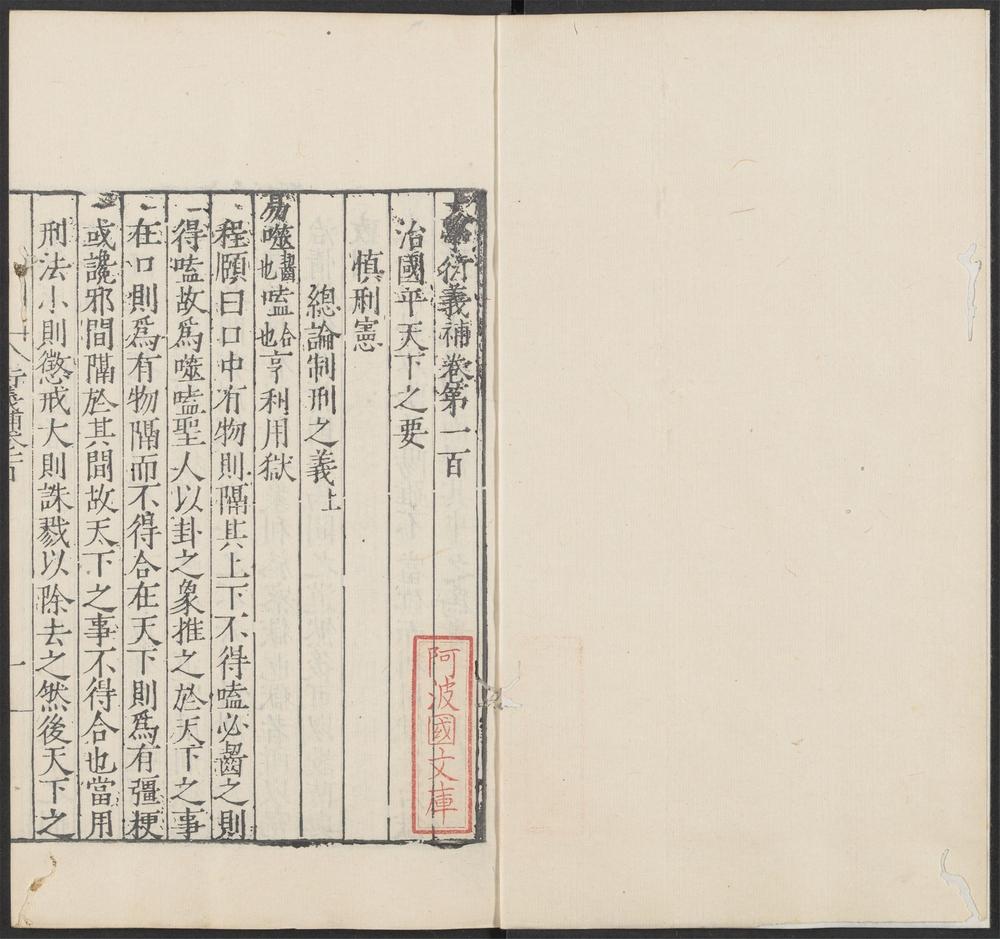 大學衍義補卷第一百
治國平天下之要
慎刑憲
總論制刑之義上
易噬齧也嗑合也亨利用獄
程頤曰口中有物則隔其上下不得嗑必齧之則
得嗑故爲噬嗑聖人以卦之象推之於天下之事
在口則爲有物隔而不得合在天下則爲有彊梗
或讒邪間隔於其間故天下之事不得合也當用
刑法小則懲戒大則誅戮以除去之然後天下之
阿波國文庫